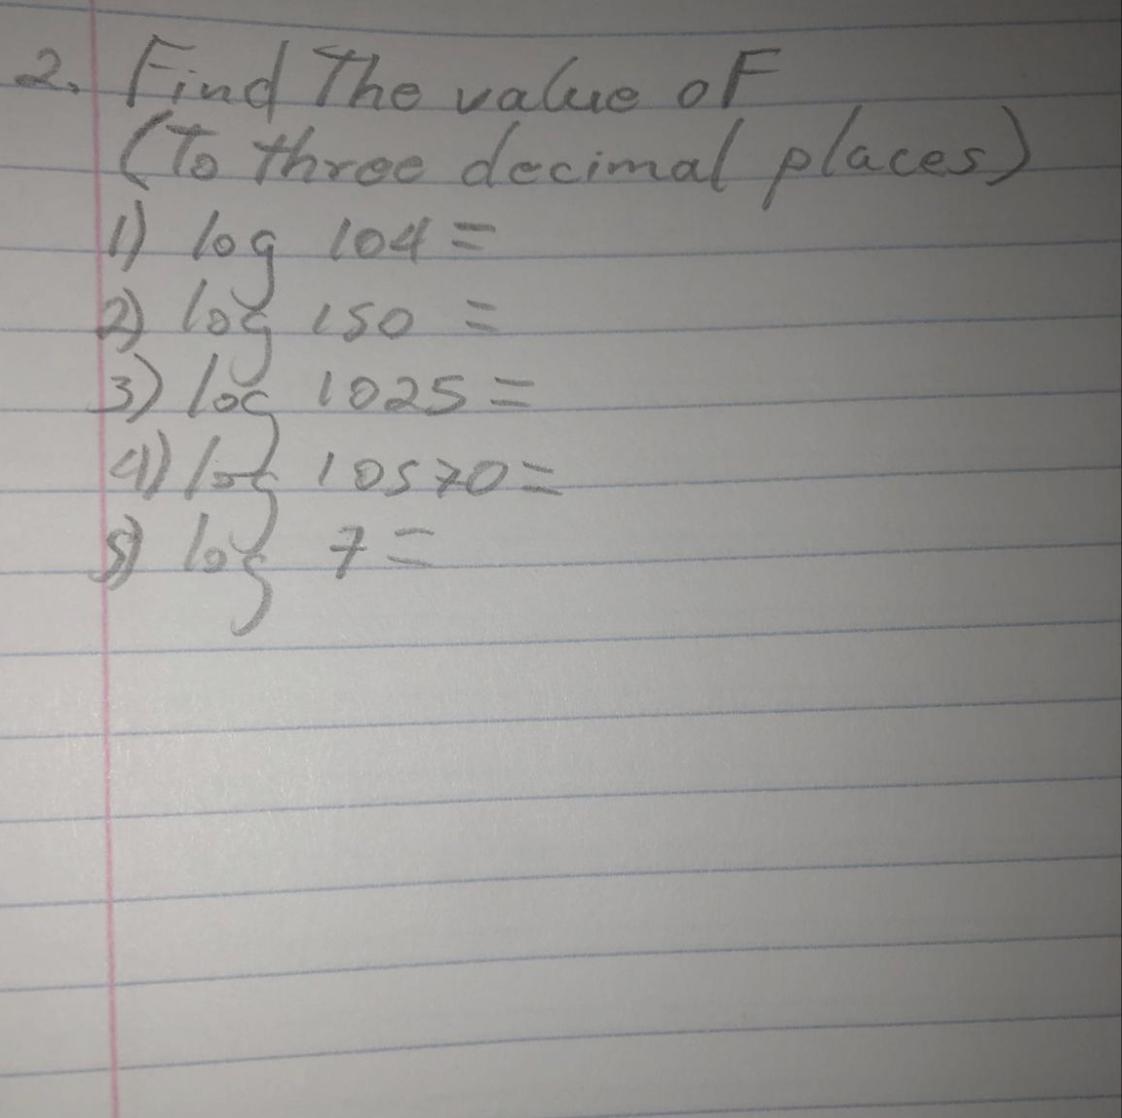 2. Find The value of
(To three decimal places)
1) log 104 =
2) log 150 =
3) log 1025 =
4) log 10570 =
5) log 7 =